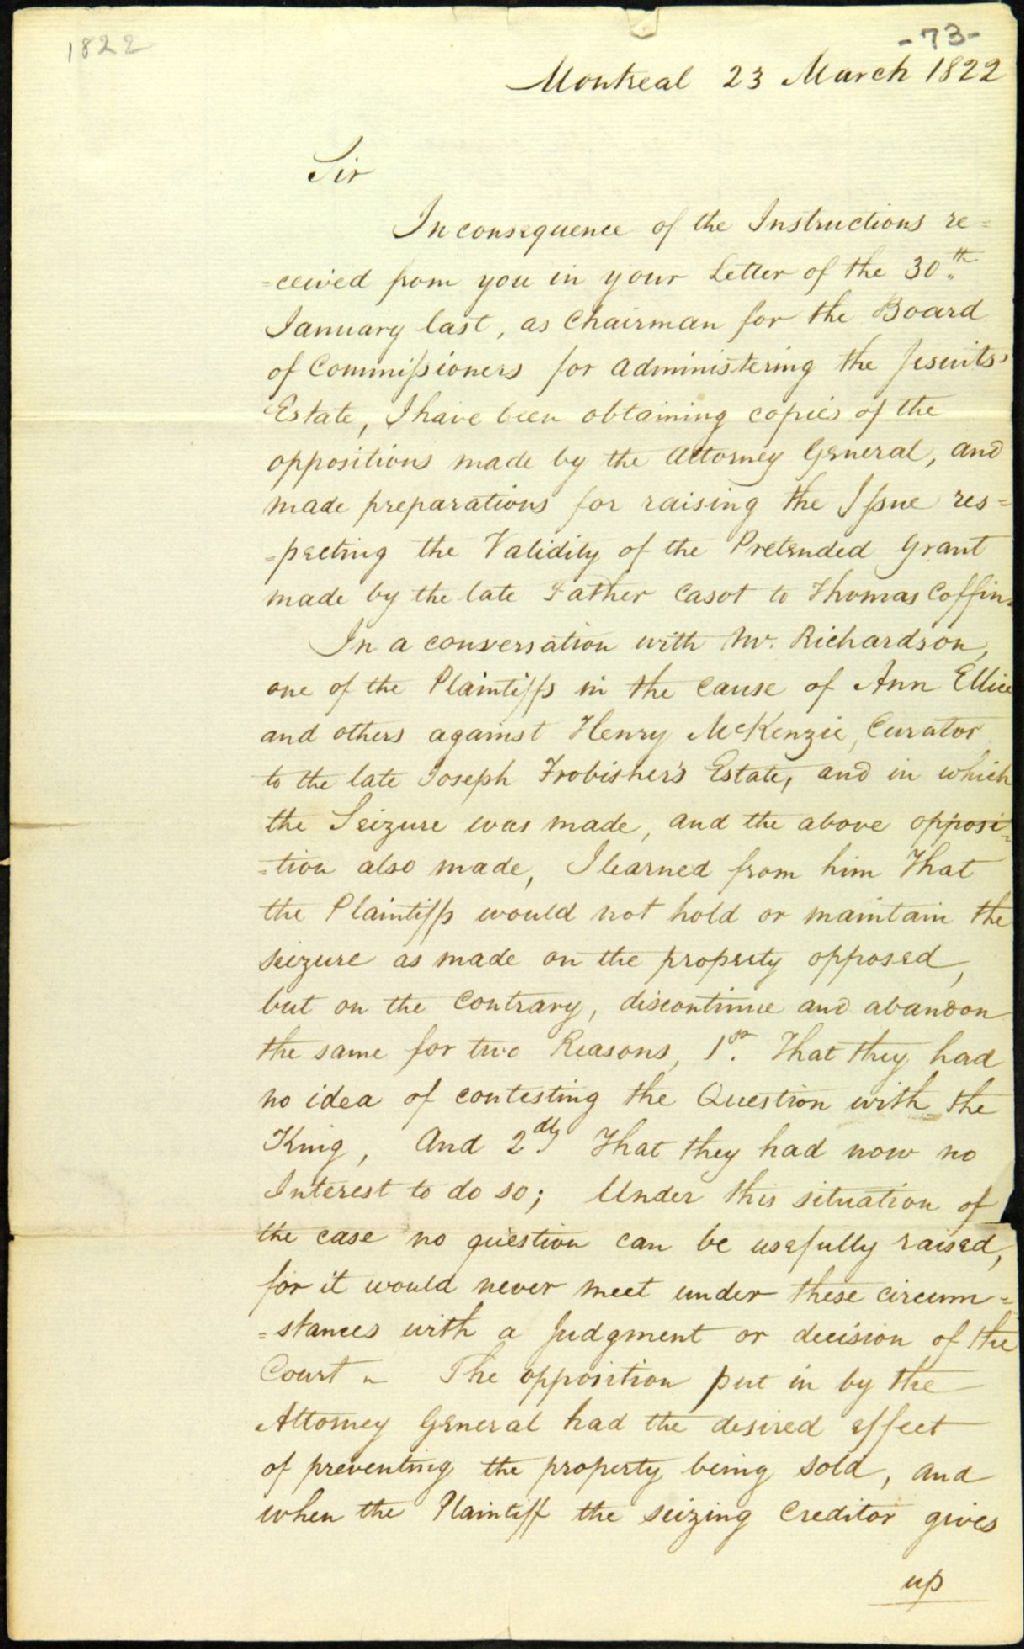 1822
-73-
Montreal 23 March 1822
Sir
In consequence of the Instructions re=
=ceived from you in your Letter of the 30.th
January last, as Chairman for the Board
of Commissioners for administering the Jesuits'
Estate, I have been obtaining copies of the
oppositions made by the Attorney General, and
made preparations for raising the Issue res=
=pecting the Validity of the Pretended Grant
made by the late Father Casot to Thomas Coffin.
In a conversation with Mr. Richardson,
one of the Plaintiffs in the cause of Ann Ellice
and others against Henry McKenzie, Curator
to the late Joseph Frobisher's Estate, and in which
the Seizure was made, and the above opposi=
=tion also made, I learned from him That
the Plaintiffs would not hold or maintain the
seizure as made on the property opposed,
but on the Contrary, discontinue and abandon
the same for two Reasons, 1st. That they had
no idea of contesting the Question with the
King, And 2dly That they had now no
Interest to do so; Under this situation of
the case no question can be usefully raised,
for it would never meet under these circum=
=stances with a Judgment or decision of the
Court - The opposition put in by the
Attorney General had the desired effect
of preventing the property being sold, and
when the Plaintiff the seizing Creditor gives
up